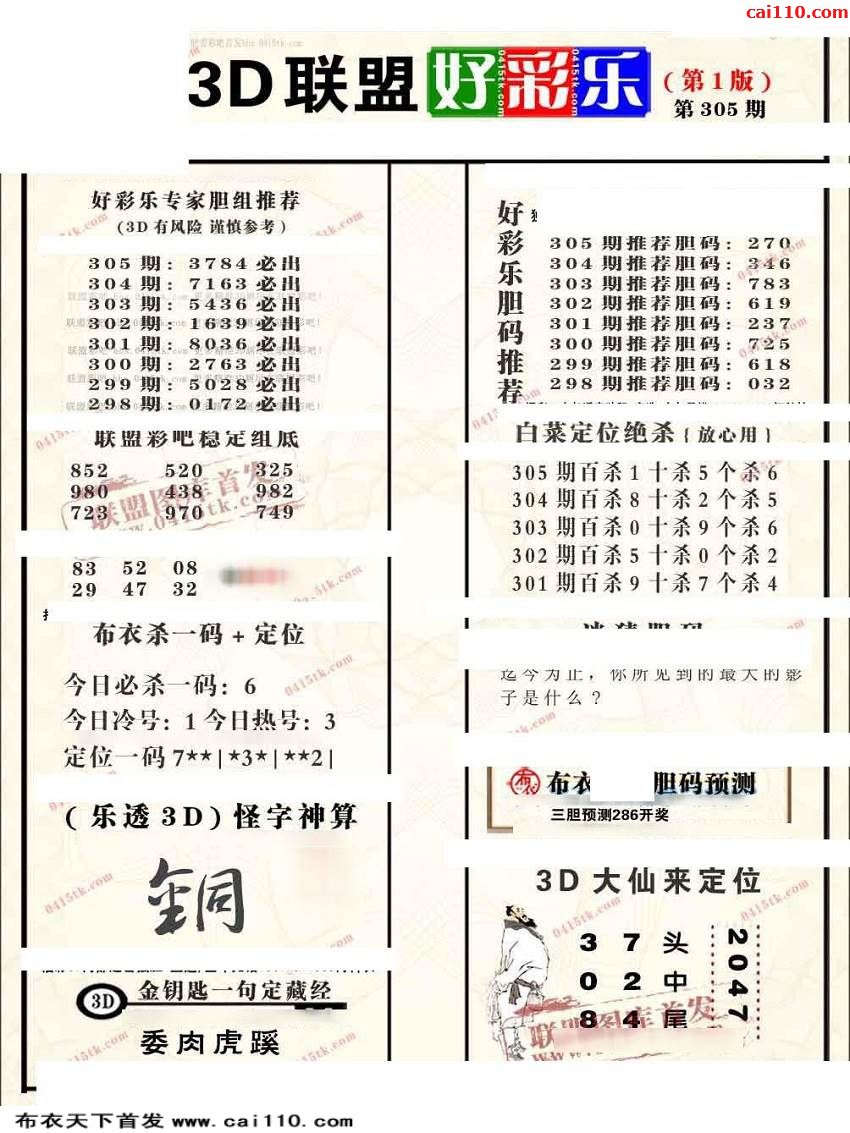 cai110.com
3D联盟 好彩乐 (第1版)
第305期
好彩乐专家胆组推荐
(3D有风险 谨慎参考)
305期: 3784必出
304期: 7163必出
303期: 5436必出
302期: 1639必出
301期: 8036必出
300期: 2763必出
299期: 5028必出
298期: 0172必出
联盟彩吧稳定组底
852 520 325
980 438 982
723 970 749
83 52 08
29 47 32
布衣杀一码+定位
今日必杀一码: 6
今日冷号: 1 今日热号: 3
定位一码7**|*3*|**2|
(乐透3D)怪字神算
銅
3D 金钥匙一句定藏经
委肉虎蹊
好彩乐胆码推荐
305期推荐胆码: 270
304期推荐胆码: 346
303期推荐胆码: 783
302期推荐胆码: 619
301期推荐胆码: 237
300期推荐胆码: 725
299期推荐胆码: 618
298期推荐胆码: 032
白菜定位绝杀{放心用}
305期百杀1十杀5个杀6
304期百杀8十杀2个杀5
303期百杀0十杀9个杀6
302期百杀5十杀0个杀2
301期百杀9十杀7个杀4
迄今为止, 你所见到的最大的影
子是什么?
布衣 胆码预测
三胆预测286开奖
3D大仙来定位
3 7 头
0 2 中
8 4 尾
2047
联盟图库首发
www.0415tk.com
布衣天下首发 www.cai110.com